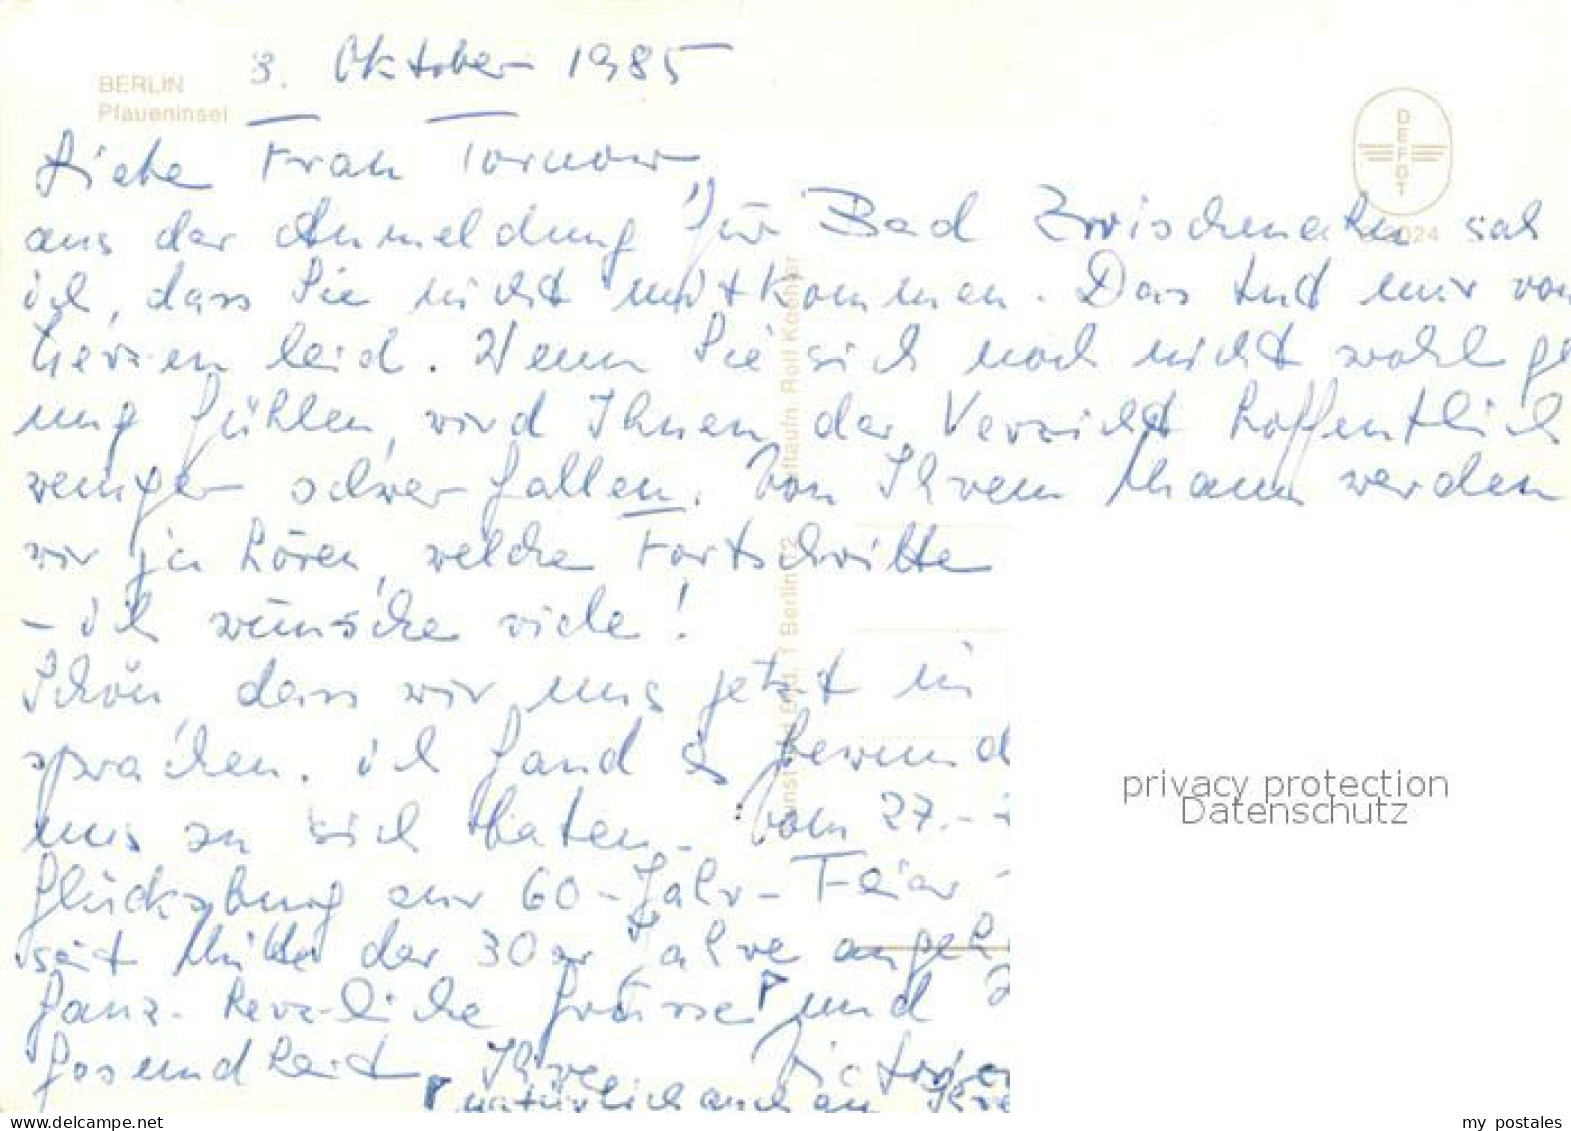 BERLIN
Pfaueninsel
3. Oktober 1985
DEFOT
Liebe Frau Tornow,
aus der Anmeldung für Bad Zwischenahn sah
ich, dass Sie nicht mitkommen. Das tut mir von
Herzen leid. Wenn Sie sich noch nicht wohl ge
nug fühlen, wird Ihnen der Verzicht hoffentlich
weniger schwer fallen. Von Ihrem Mann werden
wir ja hören, welche Fortschritte
- ich wünsche viele!
Schön, dass wir uns jetzt in
sprachen. ich fand es
uns zu sich baten. Vom 27.-
Glücksburg zur 60-Jahr-Feier -
seit Mitte der 30er Jahre angeh
Ganz herzliche Grüsse und
Gesundheit, Ihre
natürlich auch an Ihre
Kunst und Bild, 1 Berlin 12 Luftaufn. Rolf Koehler
privacy protection
Datenschutz
delcampe.net
my_postales